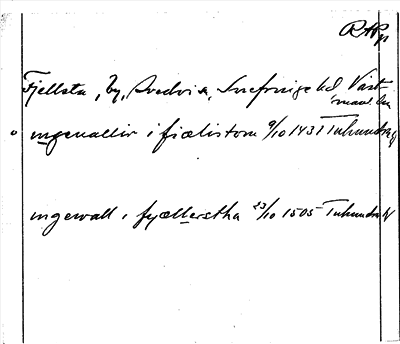 RAp
Fjellsta, by, Svedvi s, Snefringe hd Väst
manl. län
ingeuallir i fiælistom 9/10 1431 Tuhundra
ingewall i fyællerstha 23/10 1505 Tuhundra